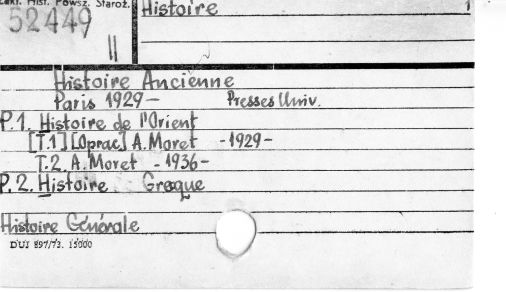 Zakł. Hist. Powsz. Staroż.
Histoire
1
52449
II
Histoire Ancienne
Paris 1929 – Presses Univ.
P.1. Histoire de l'Orient
[T.1] [Oprac.] A. Moret - 1929 -
T.2. A. Moret - 1936 -
P.2. Histoire Grecque
Histoire Générale
DUJ 897/73. 15000